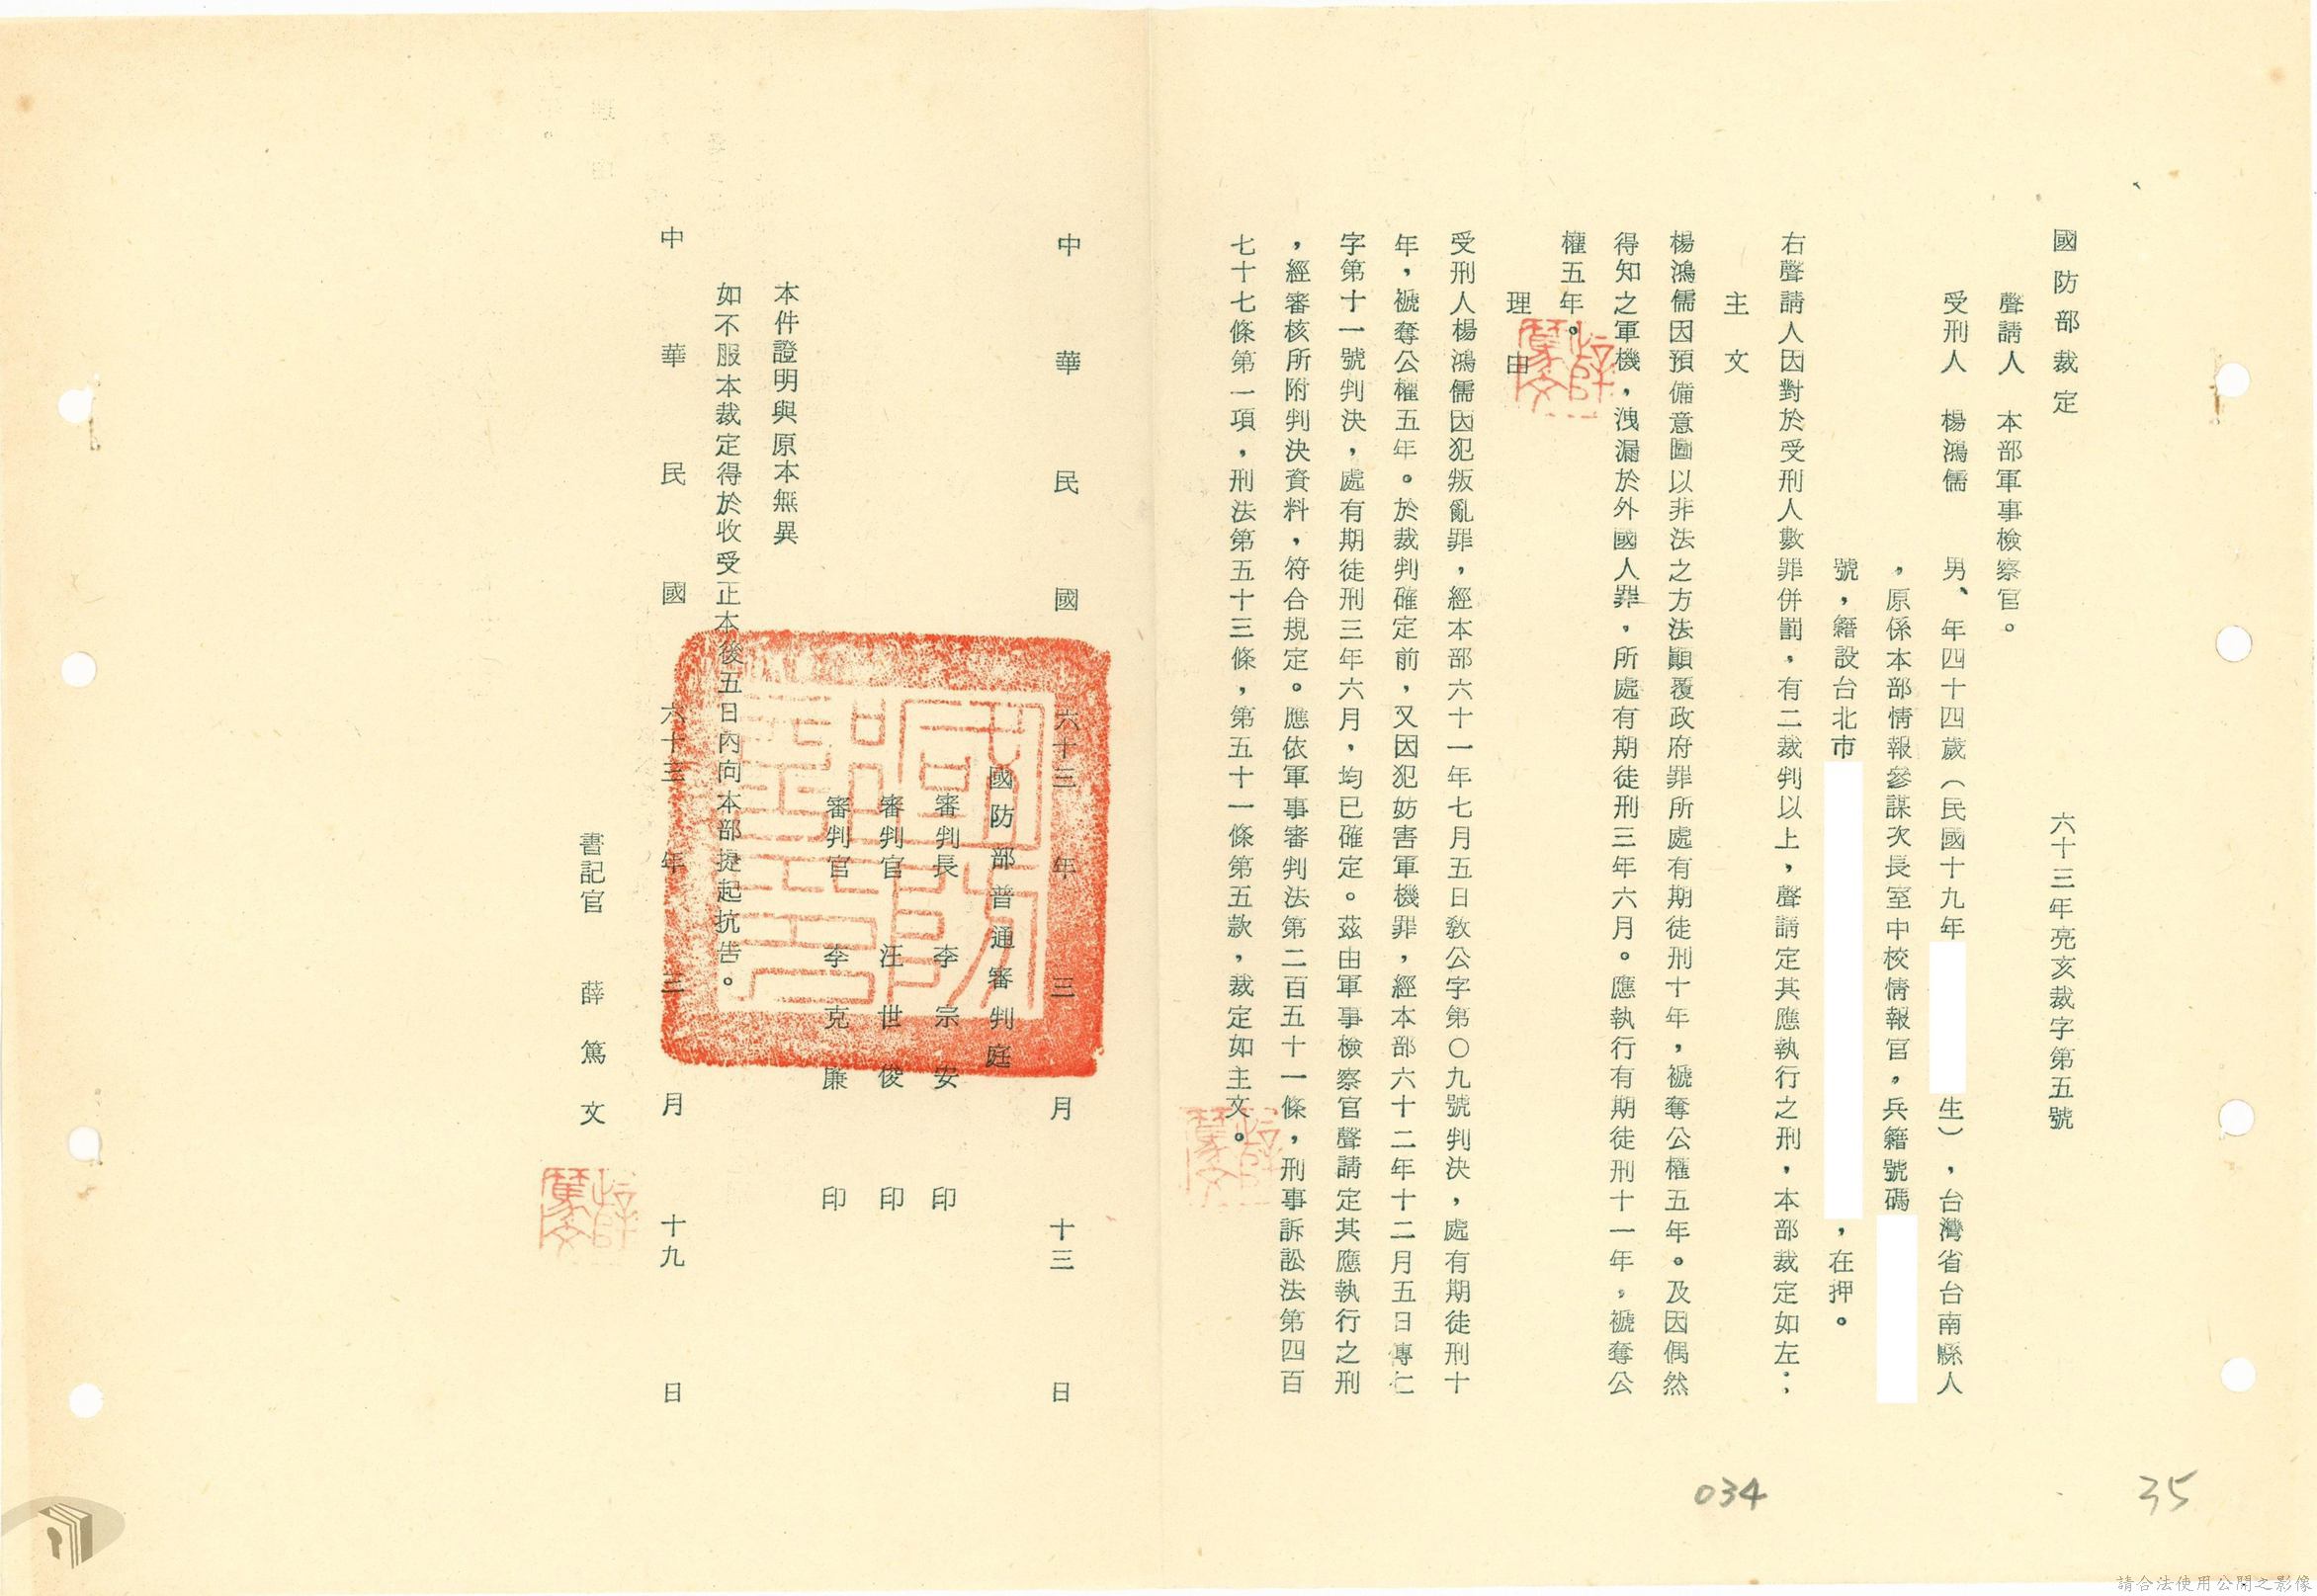 國防部裁定　六十三年亮亥裁字第五號
聲請人　本部軍事檢察官。
受刑人　楊鴻儒　男、年四十四歲（民國十九年　生），台灣省台南縣人
，原係本部情報參謀次長室中校情報官，兵籍號碼
號，籍設台北市　，在押。
右聲請人因對於受刑人數罪併罰，有二裁判以上，聲請定其應執行之刑，本部裁定如左：
主文
楊鴻儒因預備意圖以非法之方法顚覆政府罪所處有期徒刑十年，褫奪公權五年。及因偶然
得知之軍機，洩漏於外國人罪，所處有期徒刑三年六月。應執行有期徒刑十一年，褫奪公
權五年。
理由
受刑人楊鴻儒因犯叛亂罪，經本部六十一年七月五日敎公字第〇九號判決，處有期徒刑十
年，褫奪公權五年。於裁判確定前，又因犯妨害軍機罪，經本部六十二年十二月五日傳仁
字第十一號判決，處有期徒刑三年六月，均已確定。茲由軍事檢察官聲請定其應執行之刑
，經審核所附判決資料，符合規定。應依軍事審判法第二百五十一條，刑事訴訟法第四百
七十七條第一項，刑法第五十三條，第五十一條第五款，裁定如主文。
中華民國六十三年三月十三日
國防部普通審判庭
審判長　李宗安　印
審判官　汪世俊　印
審判官　李克廉　印
本件證明與原本無異
如不服本裁定得於收受正本後五日內向本部提起抗告。
中華民國六十三年三月十九日
書記官　薛篤文
薛篤文
034
35
請合法使用公開之影像